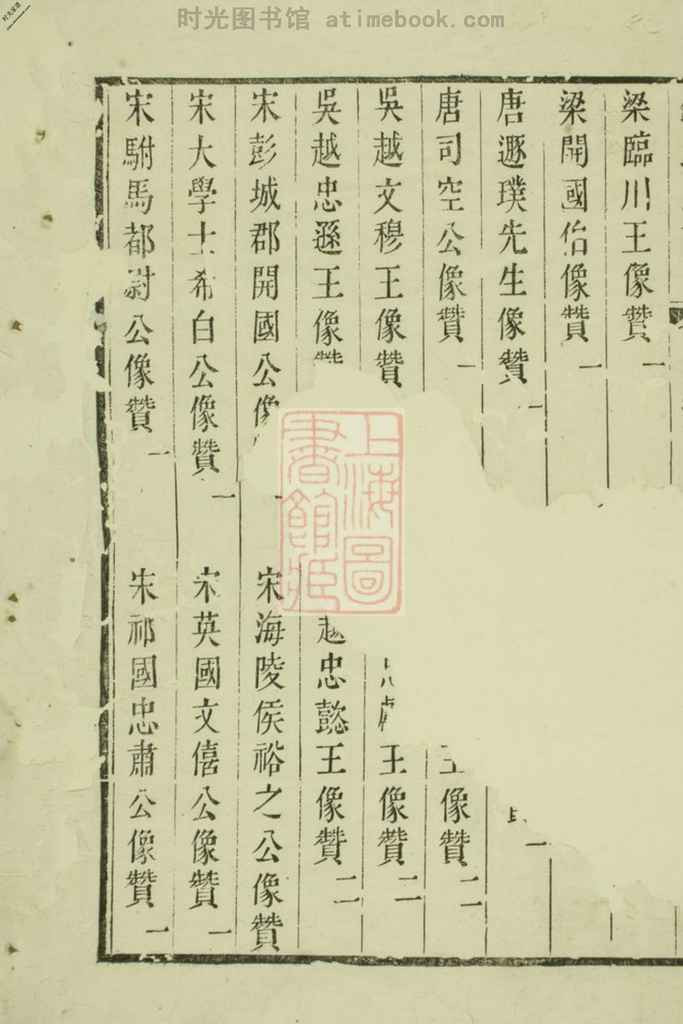 时光图书馆 atimebook.com
梁臨川王像贊 一
梁開國伯像贊 一
唐遯璞先生像贊 一
唐司空公像贊 一
王像贊 二
吳越文穆王像贊
王像贊 二
吳越忠遜王像贊
越忠懿王像贊 二
宋彭城郡開國公像
宋海陵侯裕之公像贊
宋大學士希白公像贊 一
宋英國文僖公像贊 一
宋駙馬都尉公像贊 一
宋祁國忠肅公像贊 一
上海圖書館藏